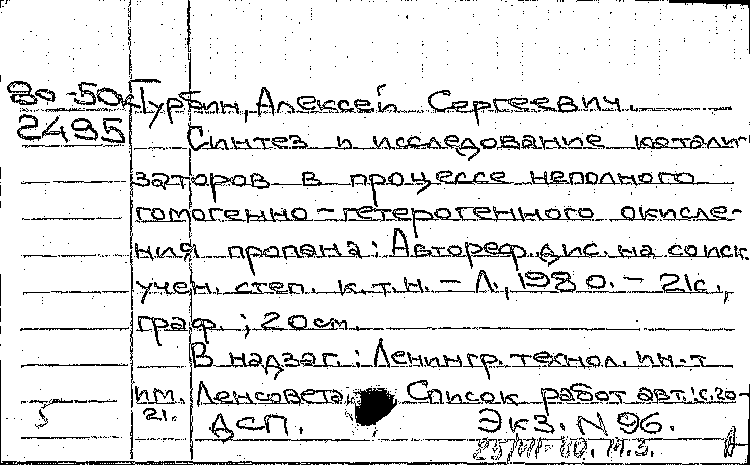 80-50к Гурбин, Алексей Сергеевич.
2495 Синтез и исследование катали-
заторов в процессе неполного
гомогенно-гетерогенного окисле-
ния пропана: Автореф.дис.на соиск.
учен. степ. к.т.н. - Л., 1980. - 21с.,
граф.; 20см.
В надзаг.: Ленингр.технол.ин-т
им. Ленсовета. Список работ авт.: с.20-
21.
5 ДСП. Экз. N 96.